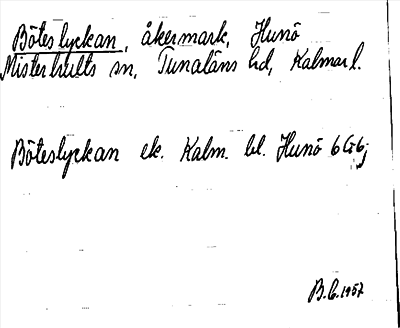 Böteslyckan, åkermark, Hunö
Misterhults sn, Tunaläns hd, Kalmar l.
Böteslyckan ek. Kalm. bl. Hunö 6 G 6 j
B.G. 1957